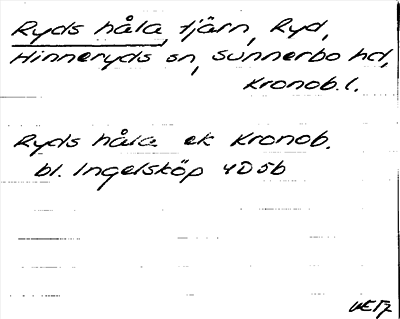 Ryds håla, tjärn, Ryd,
Hinneryds sn, Sunnerbo hd,
Kronob. l.
Ryds håla ek Kronob.
bl. Ingelsköp 4D5b